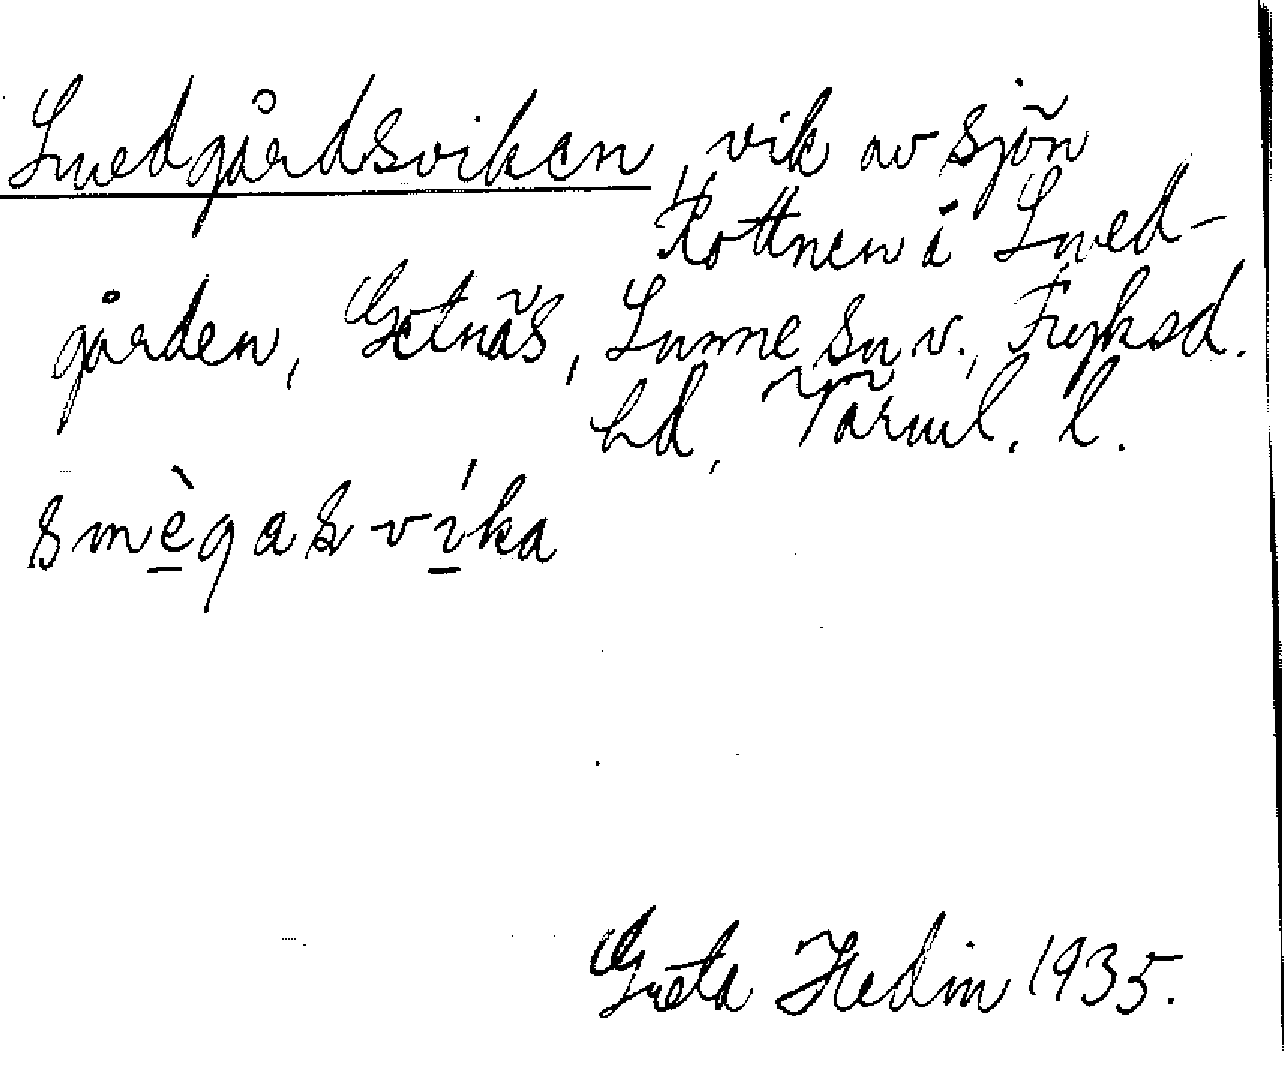 Smedgårdsviken, vik av sjön
Rottnen i Smed-
gården, Getnäs, Sunne sn v., Fryksd.
hd, Värml. l.
smègasvíka
Greta Hedin 1935.